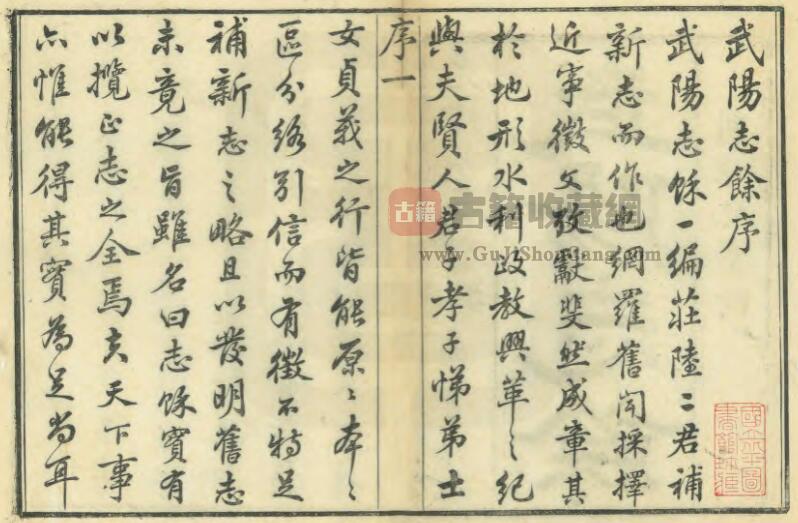 武陽志餘序
武陽志餘一編莊陸二君補
新志而作也網羅舊聞採擇
近事徵文攷獻斐然成章其
於地形水利政教興革之紀
與夫賢人君子孝子悌弟士
序一
女貞義之行皆能原〻本〻
區分縷引信而有徵不特足
補新志之略且以發明舊志
未竟之旨雖名曰志餘實有
以攬正志之全焉夫天下事
亦惟能得其實為足尚耳
古籍
古籍收藏網
www.GuJiShouCang.com